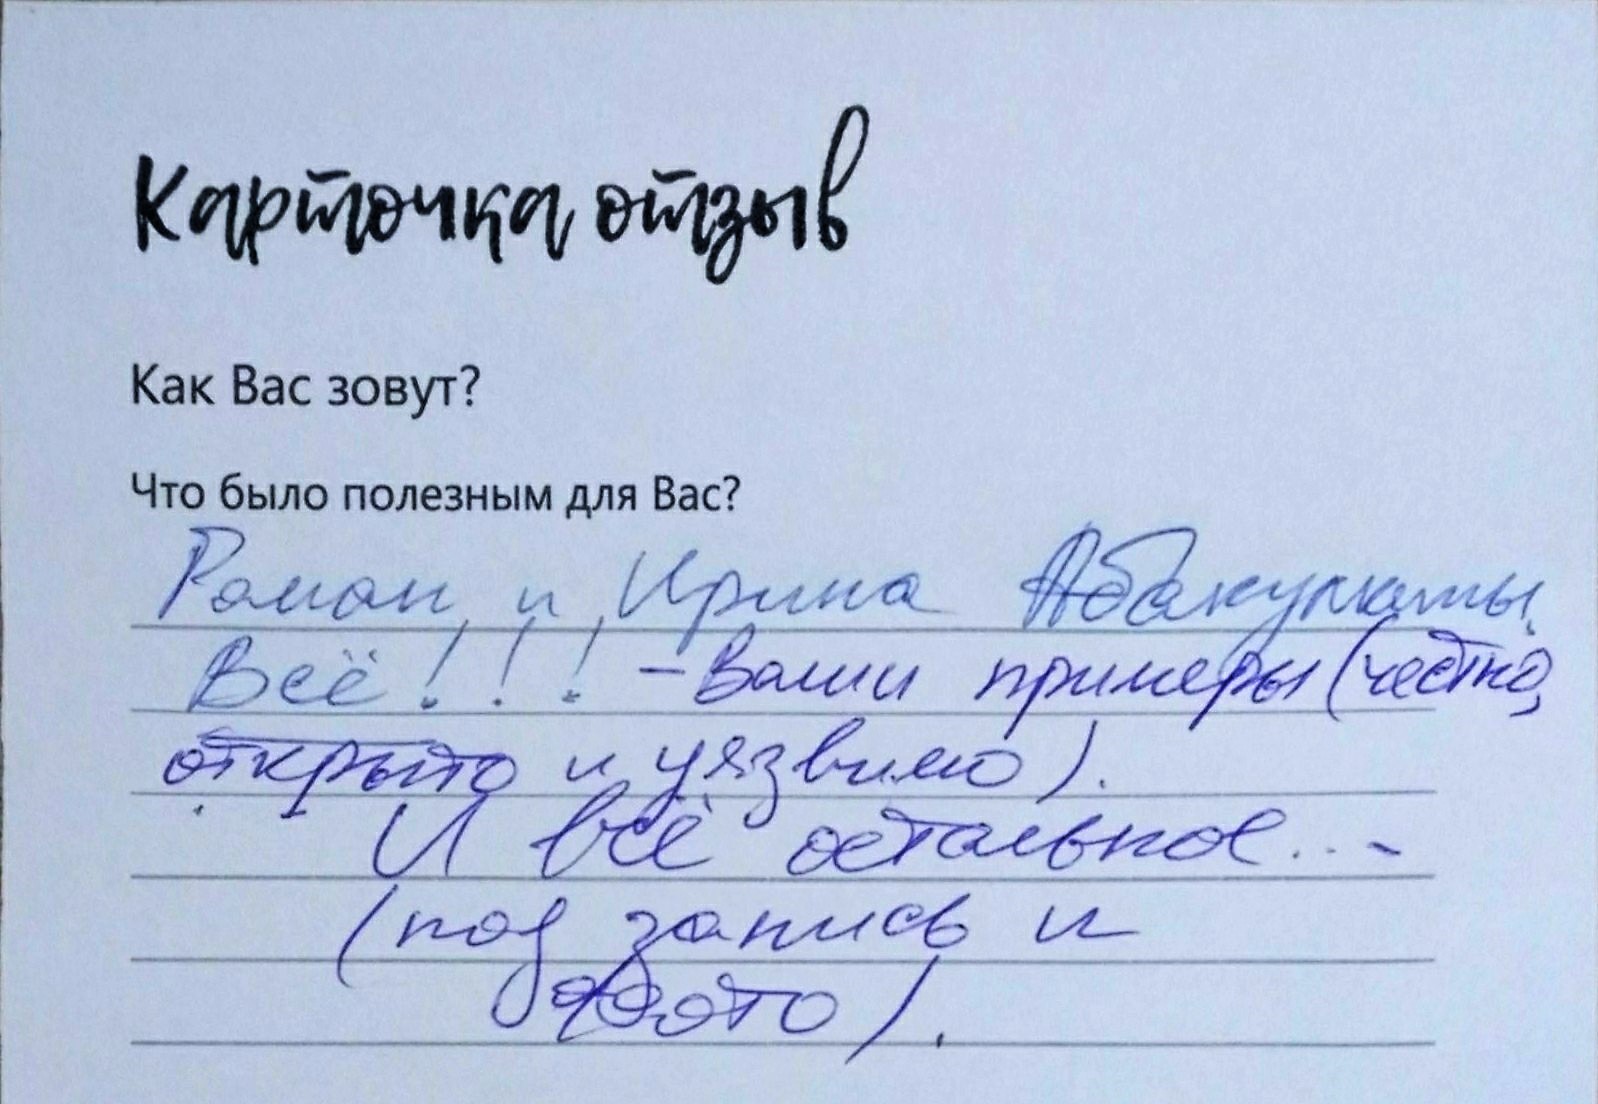 Карточка отзыв
Как Вас зовут?
Что было полезным для Вас?
Роман и Ирина Абакумкины.
Всё!!! – Ваши примеры (честно,
открыто и уязвимо).
И всё остальное...
(под запись и
фото).